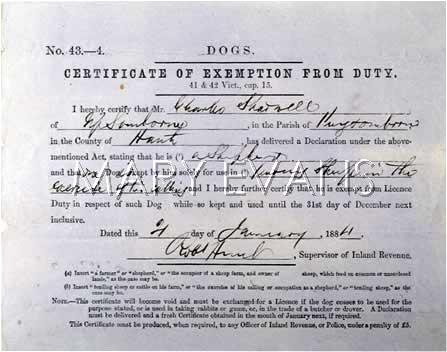 No. 43.—4.
DOGS.
CERTIFICATE OF EXEMPTION FROM DUTY.
41 & 42 Vict., cap. 15.
I hereby certify that Mr. Charles
of Up Somborne, in the Parish of
in the County of Hants, has delivered a Declaration under the above-
mentioned Act, stating that he is (a) a Shepherd
and that Dog kept by his solely for use in Sheep in the
exercise of his calling and I hereby further certify that he is exempt from Licence
Duty in respect of such Dog while so kept and used until the 31st day of December next
inclusive.
Dated this 21 day of January 1884.
Supervisor of Inland Revenue.
(a) Insert "a farmer" or "shepherd," or "the occupier of a sheep farm, and owner of sheep, which feed on common or unenclosed
lands," as the case may be.
(b) Insert "tending sheep or cattle on his farm," or "the exercise of his calling or occupation as a shepherd," or "tending sheep," as the
case may be.
NOTE.—This certificate will become void and must be exchanged for a Licence if the dog ceases to be used for the
purpose stated, or is used in taking rabbits or game, or, in the trade of a butcher or drover. A Declaration
must be delivered and a fresh Certificate obtained in the month of January next, if required.
This Certificate must be produced, when required, to any Officer of Inland Revenue, or Police, under a penalty of £5.
MARY EVANS